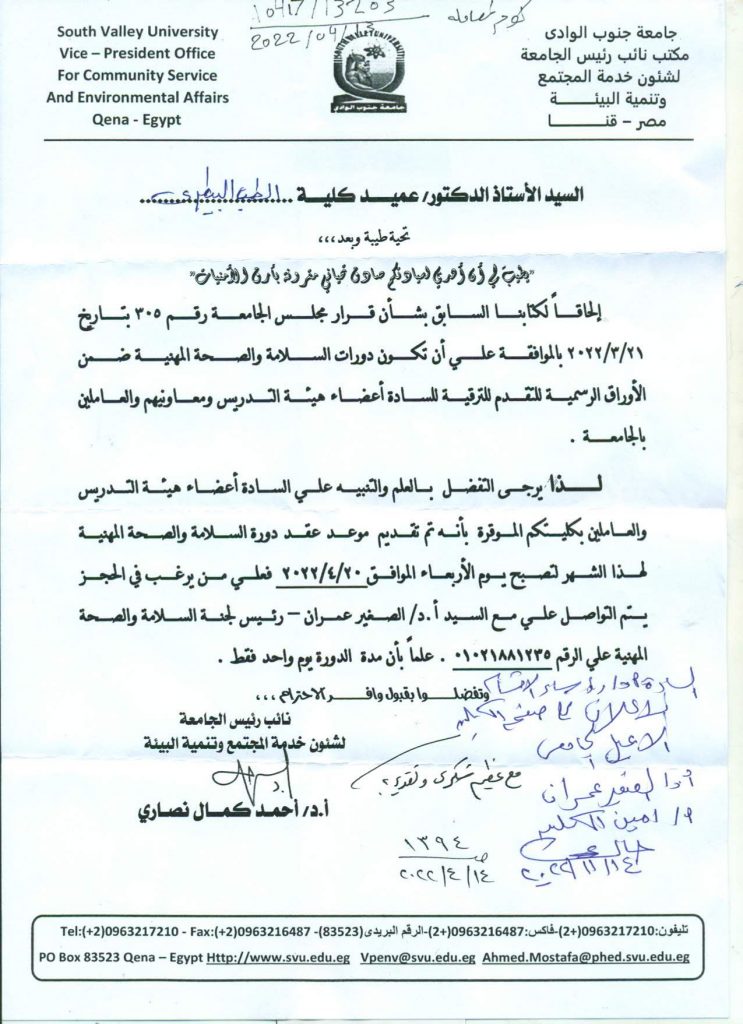 South Valley University
Vice – President Office
For Community Service
And Environmental Affairs
Qena - Egypt
جامعة جنوب الوادى
مكتب نائب رئيس الجامعة
لشئون خدمة المجتمع
وتنمية البيئـــــة
مصر – قنـــــــا
2022/04/13
SOUTH VALLEY UNIVERSITY
جامعة جنوب الوادى
السيد الأستاذ الدكتور/ عميد كلية ...الطب البيطرى...
تحية طيبة وبعد ،،،
"يطيب لي أن أهدي لسيادتكم صادق تحياتي مقرونة بأرق الأمنيات"
إلحاقاً لكتابنا السابق بشأن قرار مجلس الجامعة رقم ٣٠٥ بتاريخ
٢٠٢٢/٣/٢١ بالموافقة علي أن تكون دورات السلامة والصحة المهنية ضمن
الأوراق الرسمية للتقدم للترقية للسادة أعضاء هيئة التدريس ومعاونيهم والعاملين
بالجامعة .
لـــذا يرجى التفضل بالعلم والتنبيه علي السادة أعضاء هيئة التدريس
والعاملين بكليتكم الموقرة بأنه تم تقديم موعد عقد دورة السلامة والصحة المهنية
لهذا الشهر لتصبح يوم الأربعاء الموافق ٢٠٢٢/٤/٢٠ فعلي من يرغب في الحجز
يتم التواصل علي مع السيد أ.د/ الصغير عمران – رئيس لجنة السلامة والصحة
المهنية علي الرقم ٠١٠٢١٨٨١٢٣٥ . علماً بأن مدة الدورة يوم واحد فقط .
وتفضلـــوا بقبول وافـــر الاحترام ،،،
نائب رئيس الجامعة
لشئون خدمة المجتمع وتنمية البيئة
أ.د/ أحمد كمال نصاري
السادة
الاعلان
صفحة الكلية
أ.د الصغير عمران
أ/ امين الكلية
مع عظيم شكرى وتقديرى
١٣٩٤
٢٠٢٢/٤/١٤
تليفون:0963217210(2+)-فاكس:0963216487(2+)-الرقم البريدى(83523)- Tel:(+2)0963217210 - Fax:(+2)0963216487
PO Box 83523 Qena – Egypt Http://www.svu.edu.eg Vpenv@svu.edu.eg Ahmed.Mostafa@phed.svu.edu.eg